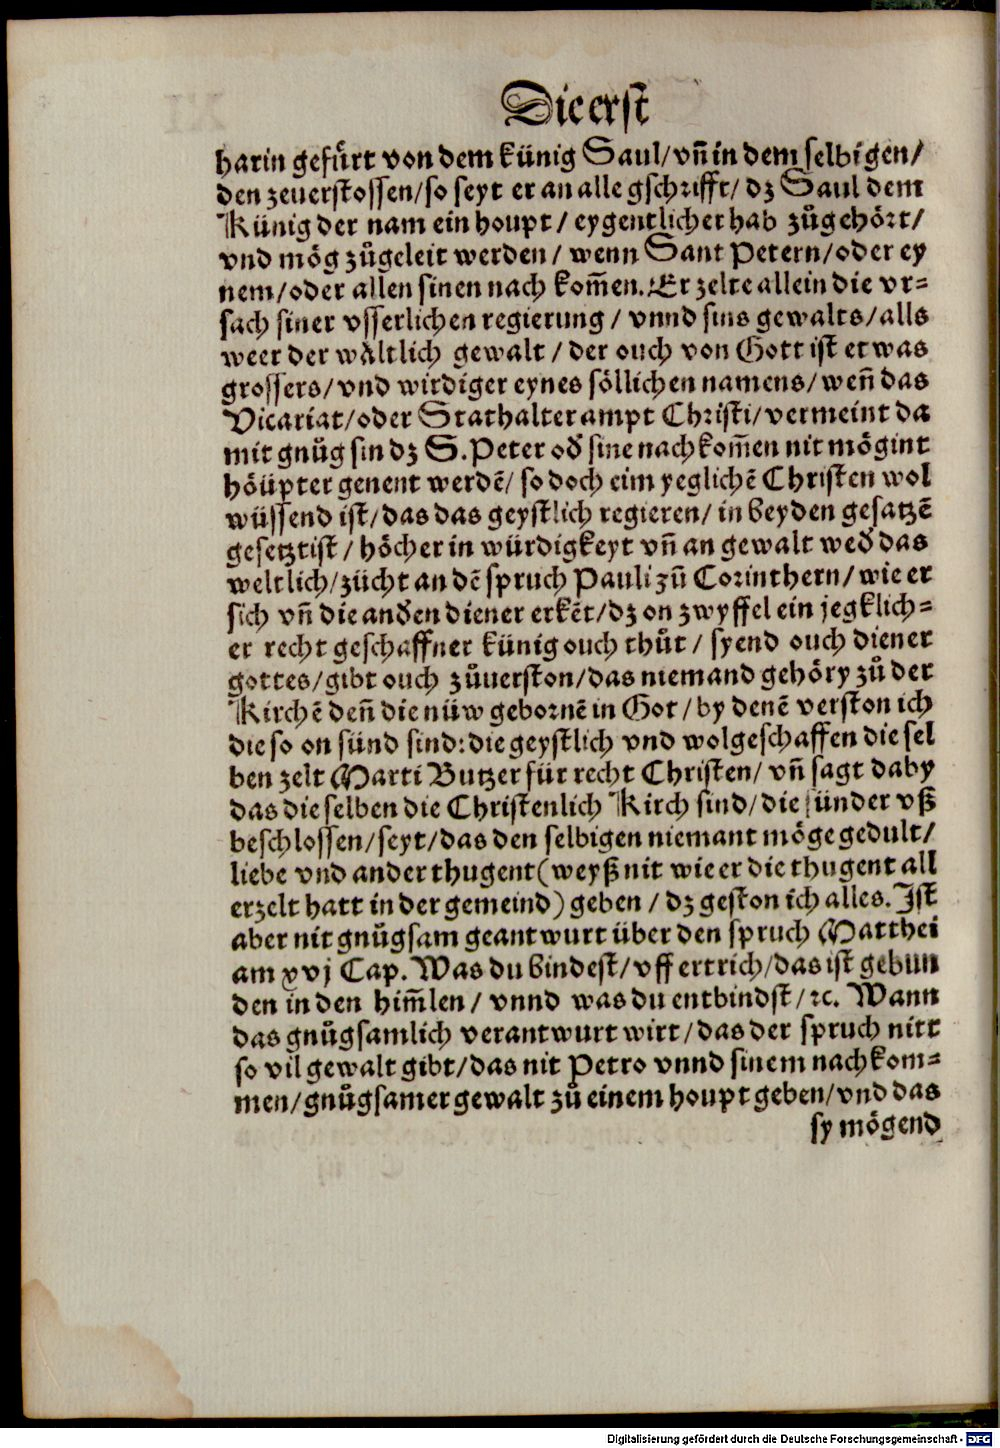 Die erst
harin gefürt von dem künig Saul/vñ in dem selbigen/
den zeuerstossen/so seyt er an alle gschrifft/ dz Saul dem
Künig der nam ein houpt/ eygentlicher hab zůgehört/
vnd mög zůgeleit werden/ wenn Sant Petern/oder ey
nem/oder allen sinen nach kom̃en. Er zelte allein die vr-
sach siner vsserlichen regierung/ vnnd sins gewalts/alls
weer der wältlich gewalt/ der ouch von Gott ist etwas
grossers/vnd wirdiger eynes söllichen namens/wen̄ das
Vicariat/oder Stathalter ampt Christi/vermeint da
mit gnůg sin dz S. Peter od̓ sine nachkom̃en nit mögint
höüpter genent werdē/ so doch eim yeglichē Christen wol
wüssend ist/das das geystlich regieren/ in beyden gesatzē
gesetzt ist/ höcher in würdigkeyt vñ an gewalt wed̓ das
weltlich/zücht an dē spruch Pauli zů Corinthern/wie er
sich vñ die and̓en diener erkēt/dz on zwyffel ein jegklich-
er recht geschaffner künig ouch thůt/ syend ouch diener
gottes/gibt ouch zůuerston/das niemand gehöry zů der
Kirchē den̄ die nüw gebornē in Got/by denē verston ich
die so on sünd sind: die geystlich vnd wolgeschaffen die sel
ben zelt Marti Butzer für recht Christen/ vñ sagt daby
das die selben die Christenlich Kirch sind/die sünder vß
beschlossen/seyt/das den selbigen niemant möge gedult/
liebe vnd ander thugent(weyß nit wie er die thugent all
erzelt hatt in der gemeind) geben/ dz geston ich alles. Ist
aber nit gnůgsam geantwurt über den spruch Matthei
am xvj Cap. Was du bindest/vff ertrich/das ist gebun
den in den him̃len/ vnnd was du entbindst/ꝛc. Wann
das gnůgsamlich verantwurt wirt/das der spruch nitt
so vil gewalt gibt/das nit Petro vnnd sinem nachkom-
men/gnůgsamer gewalt zů einem houpt geben/vnd das
sy mögend
Digitalisierung gefördert durch die Deutsche Forschungsgemeinschaft - DFG